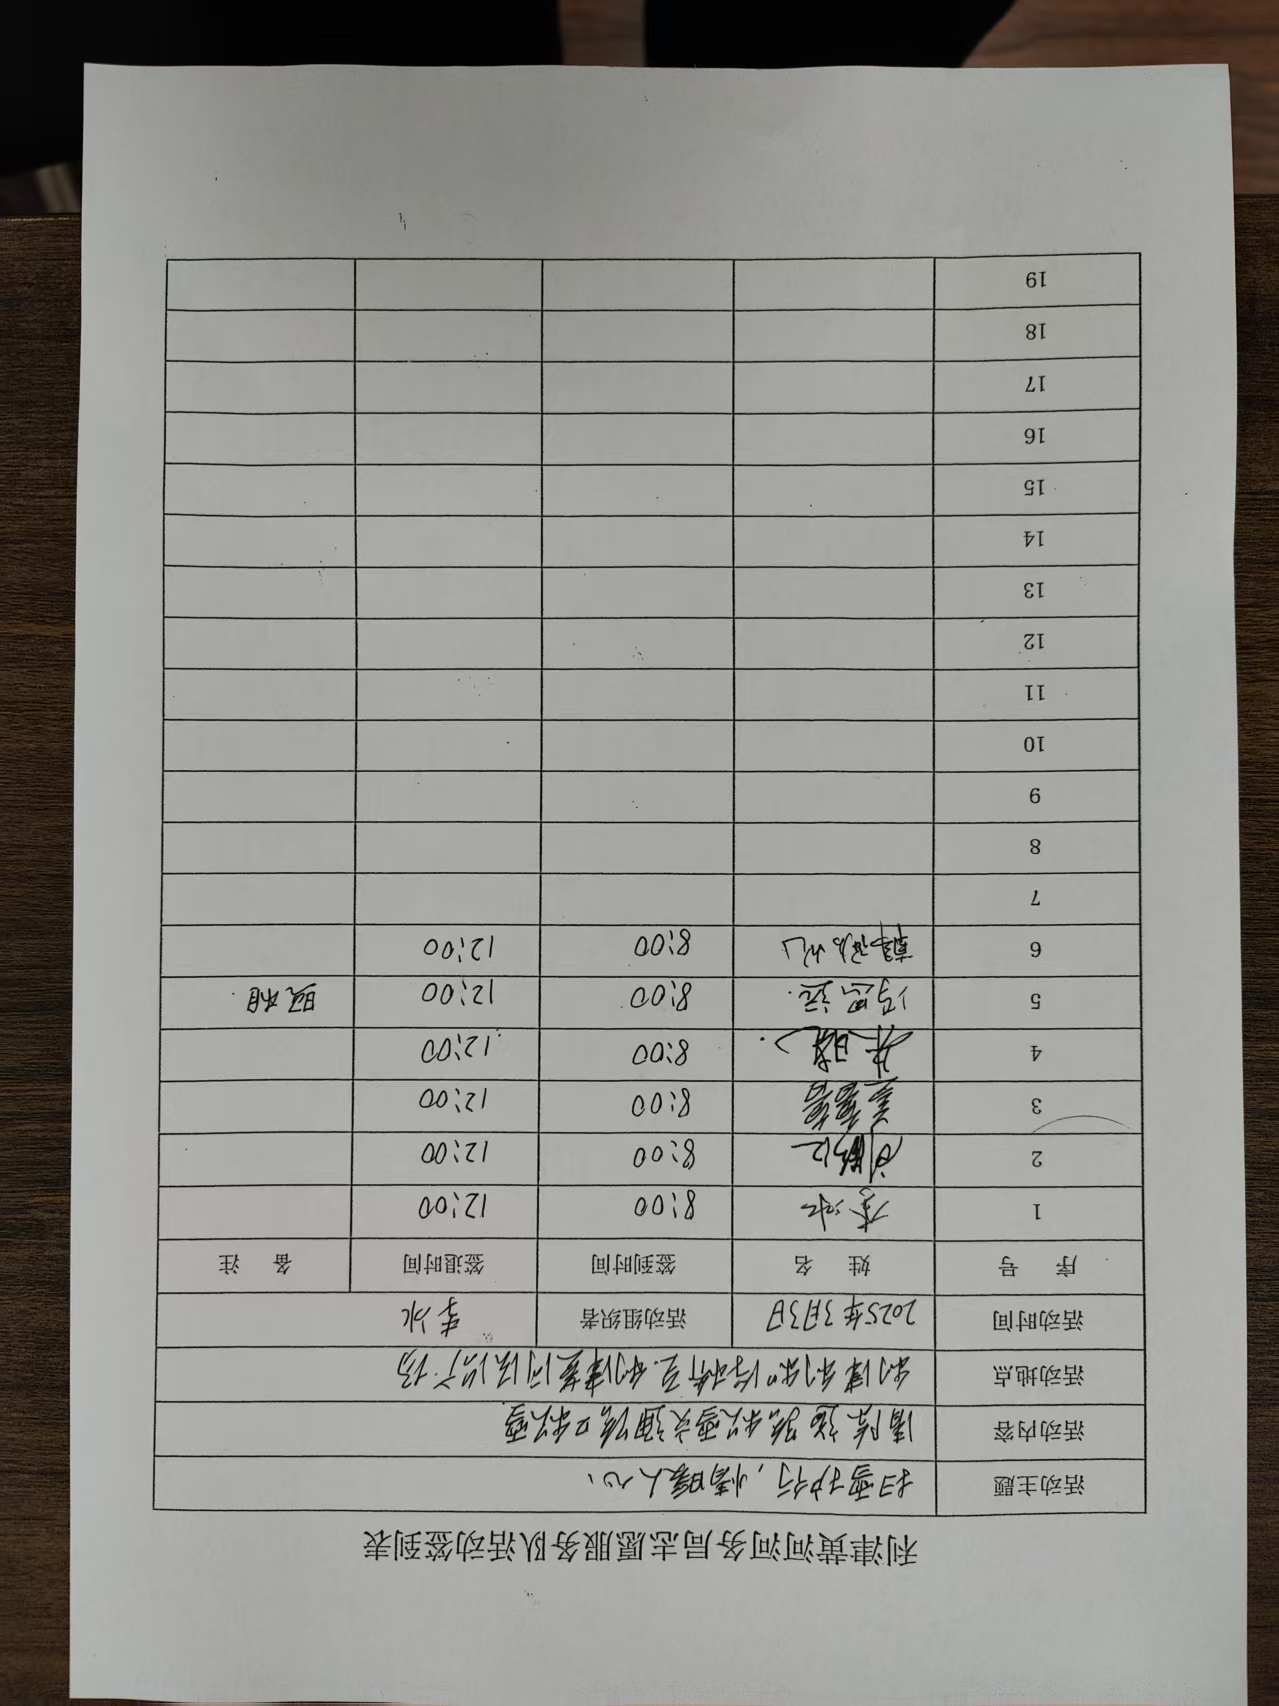 利津黄河河务局志愿服务队活动签到表
活动主题 扫雪护行，情暖人心
活动内容 清除道路积雪交通路口积雪
活动地点 利津利 至利津黄河法治广场
活动时间 2025年3月3日 活动组织者 李冰
序 号 姓 名 签到时间 签退时间 备 注
1 李冰 8:00 12:00
2 8:00 12:00
3 盖蕾蕾 8:00 12:00
4 8:00 12:00
5 冯思远 8:00 12:00 照相
6 8:00 12:00
7
8
9
10
11
12
13
14
15
16
17
18
19